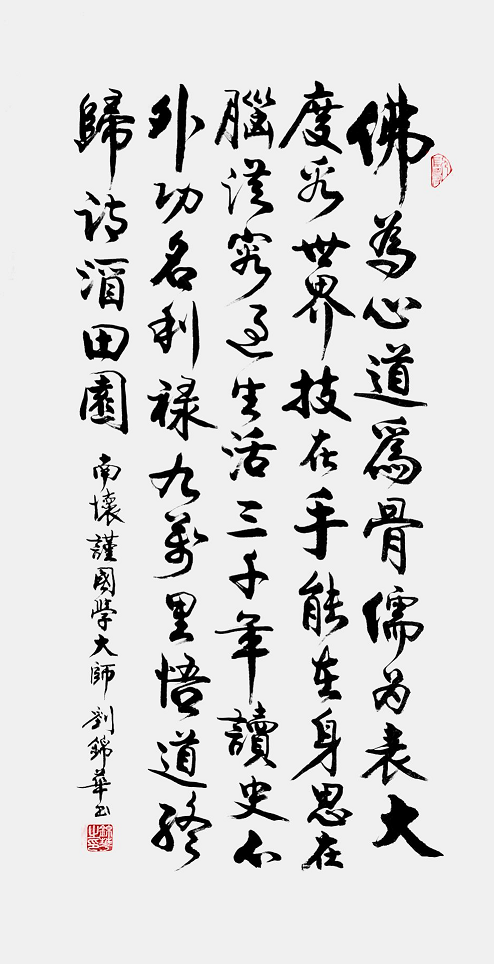 佛為心道爲骨儒为表大
度看世界技在手能在身思在
腦從容過生活三千年讀史不
外功名利禄九萬里悟道終
歸詩酒田園
南懷謹國學大師 劉錦華书